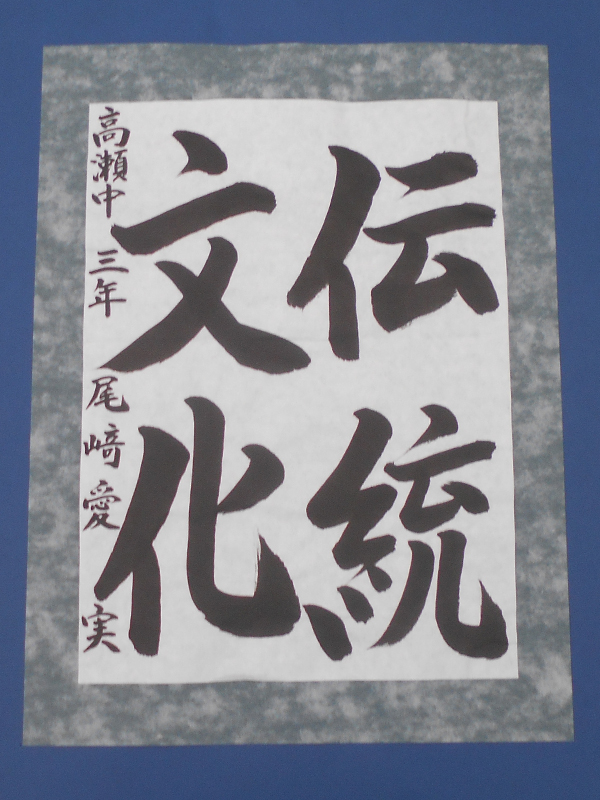 伝統
文化
高瀬中 三年 尾﨑愛実